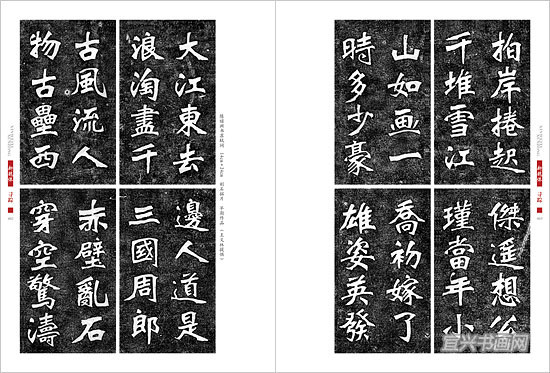 大江東去
浪淘盡千
古風流人
物古壘西
邊人道是
三國周郎
赤壁亂石
穿空驚濤
拍岸捲起
千堆雪江
山如画一
時多少豪
傑遥想公
瑾當年小
喬初嫁了
雄姿英發
寻踪
寻踪
宜兴书画网